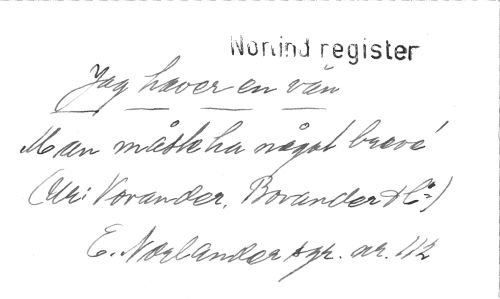 Norlind register
Jag haver en vän
Man måste ha något brevé
(Ur: Vovander, Bovander & C:o)
E. Norlanders sgr. nr. 112